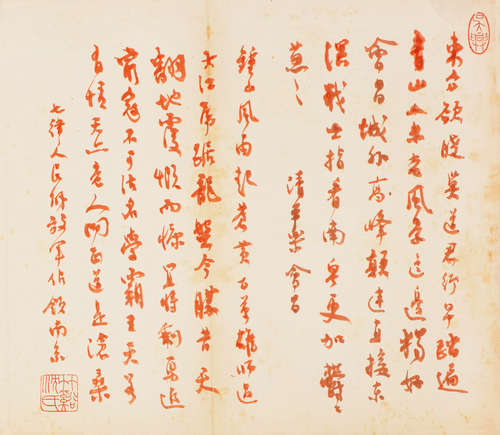 東方欲曉莫道君行早踏遍
青山人未老風景這邊獨好
會昌城外高峰顛連直接東
溟戰士指看南粤更加鬱〻
葱〻
清平樂 會昌
鍾山風雨起蒼黄百萬雄師過
大江虎踞龍盤今勝昔天
翻地覆慨而慷宜將剩勇追
窮寇不可沽名學霸王天若
有情天亦老人間正道是滄桑
七律人民解放軍佔領南京
竹谿沈氏